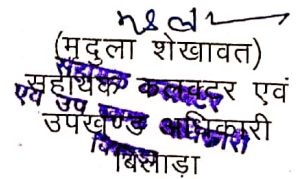 (मदुला शेखावत)
सहायक कलक्टर एवं
उपखण्ड अधिकारी
बिलाड़ा